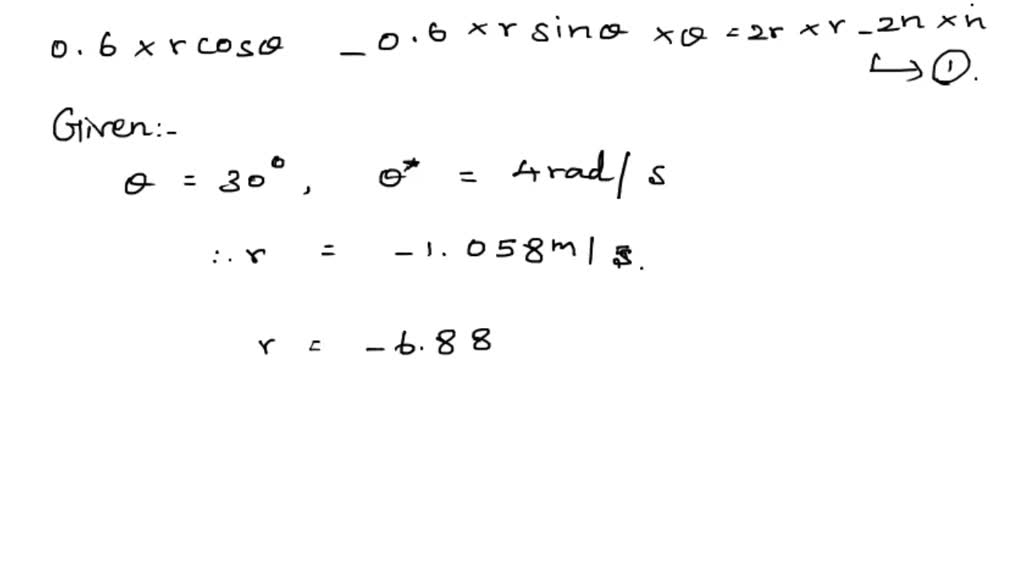 0.6 × r cosθ - 0.6 × r sinθ × θ = 2r × r - 2n × ṅ
↳ ①.
Given:-
θ = 30°, θ* = 4 rad/s
∴ r = -1.058 m/s.
r = -6.88